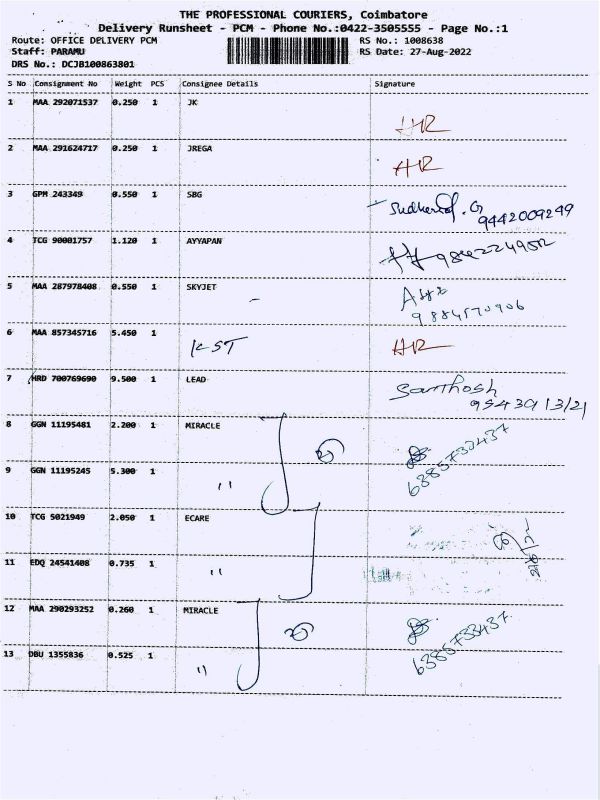 THE PROFESSIONAL COURIERS, Coimbatore
Delivery Runsheet - PCM - Phone No.:0422-3505555 - Page No.:1
Route: OFFICE DELIVERY PCM RS No.: 1008638
Staff: PARAMU RS Date: 27-Aug-2022
DRS No.: DCJB100863801
S No Consignment No Weight PCS Consignee Details Signature
1 MAA 292071537 0.250 1 JK
HR
2 MAA 291624717 0.250 1 JREGA
HR
3 GPM 243349 0.550 1 SBG
9442009249
4 TCG 90001757 1.120 1 AYYAPAN
5 MAA 287978408 0.550 1 SKYJET
9884570906
6 MAA 857345716 5.450 1 KST HR
7 HRD 700769690 9.500 1 LEAD Santhosh
9543913121
8 GGN 11195481 2.200 1 MIRACLE
6385733437
9 GGN 11195245 5.300 1 "
10 TCG 5021949 2.050 1 ECARE
11 EDQ 24541408 0.735 1 "
12 MAA 290293252 0.260 1 MIRACLE
6385733437
13 DBU 1355836 0.525 1 "